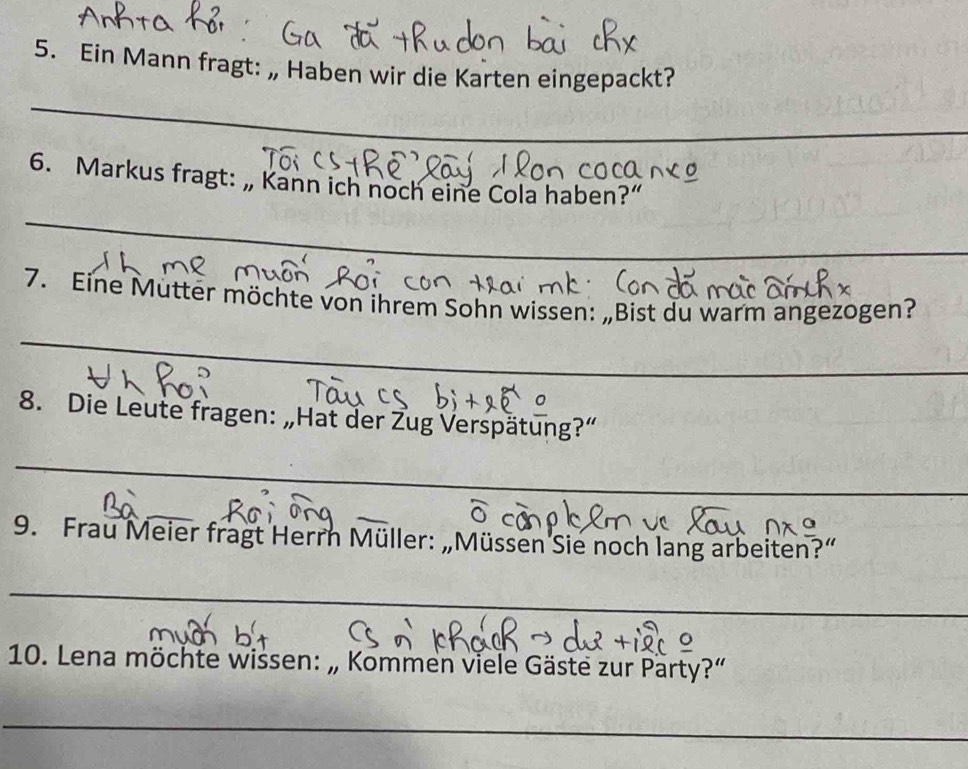 Anh ta hỏi: Ga đã thu dọn bài chx
5. Ein Mann fragt: „ Haben wir die Karten eingepackt?
Tôi cs thể lấy 1 lon coca nx o
6. Markus fragt: „ Kann ich noch eine Cola haben?“
me muốn hỏi con trai mk: Con đã mặc ấm chx
7. Eine Mutter möchte von ihrem Sohn wissen: „Bist du warm angezogen?
hỏi Tàu cs bị trễ o
8. Die Leute fragen: „Hat der Zug Verspätung?“
Bà __ hỏi ông __ ô còn p lm vc lâu nx o
9. Frau Meier fragt Herrn Müller: „Müssen Sie noch lang arbeiten?“
muốn bít Cs n khách → dự tiệc o
10. Lena möchte wissen: „ Kommen viele Gäste zur Party?“